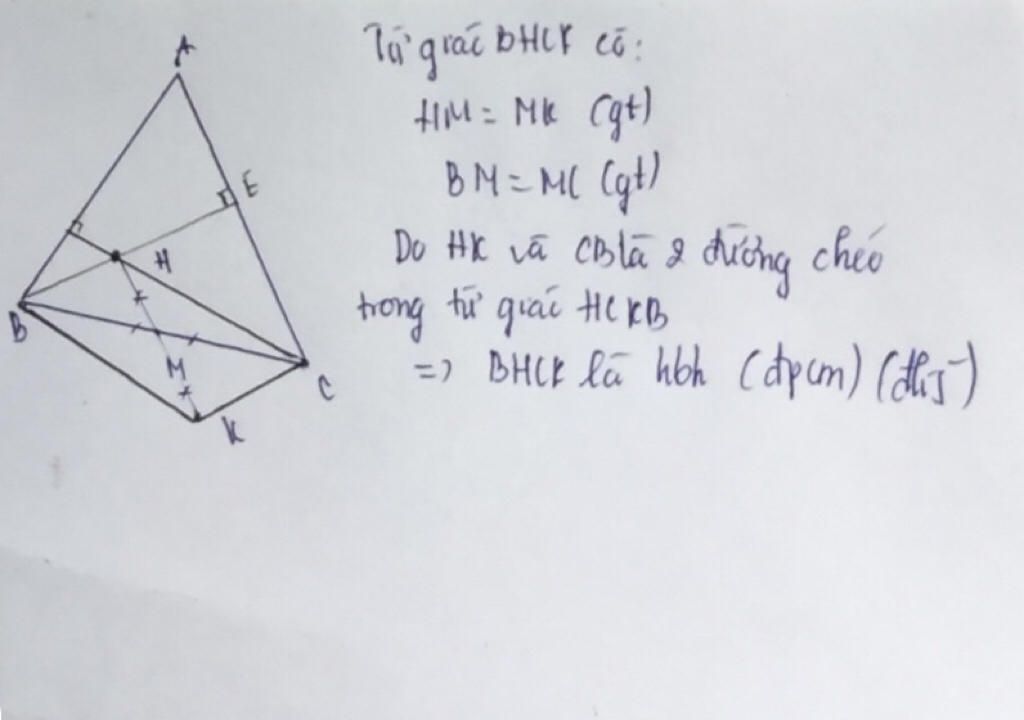 A
E
H
B
M
C
K
Tứ giác BHCK có:
HM = MK (gt)
BM = MC (gt)
Do HK và CB là 2 đường chéo
trong tứ giác HCKB
=> BHCK là hbh (đpcm)